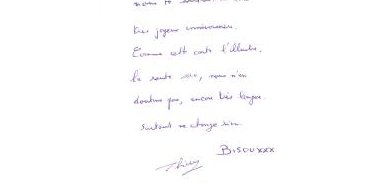 nous te
très joyeux anniversaire.
Comme cette carte l'illustre,
la route, nous n'en
doutons pas, encore très longue.
Surtout ne change rien.
BISOUXXX
Thierry